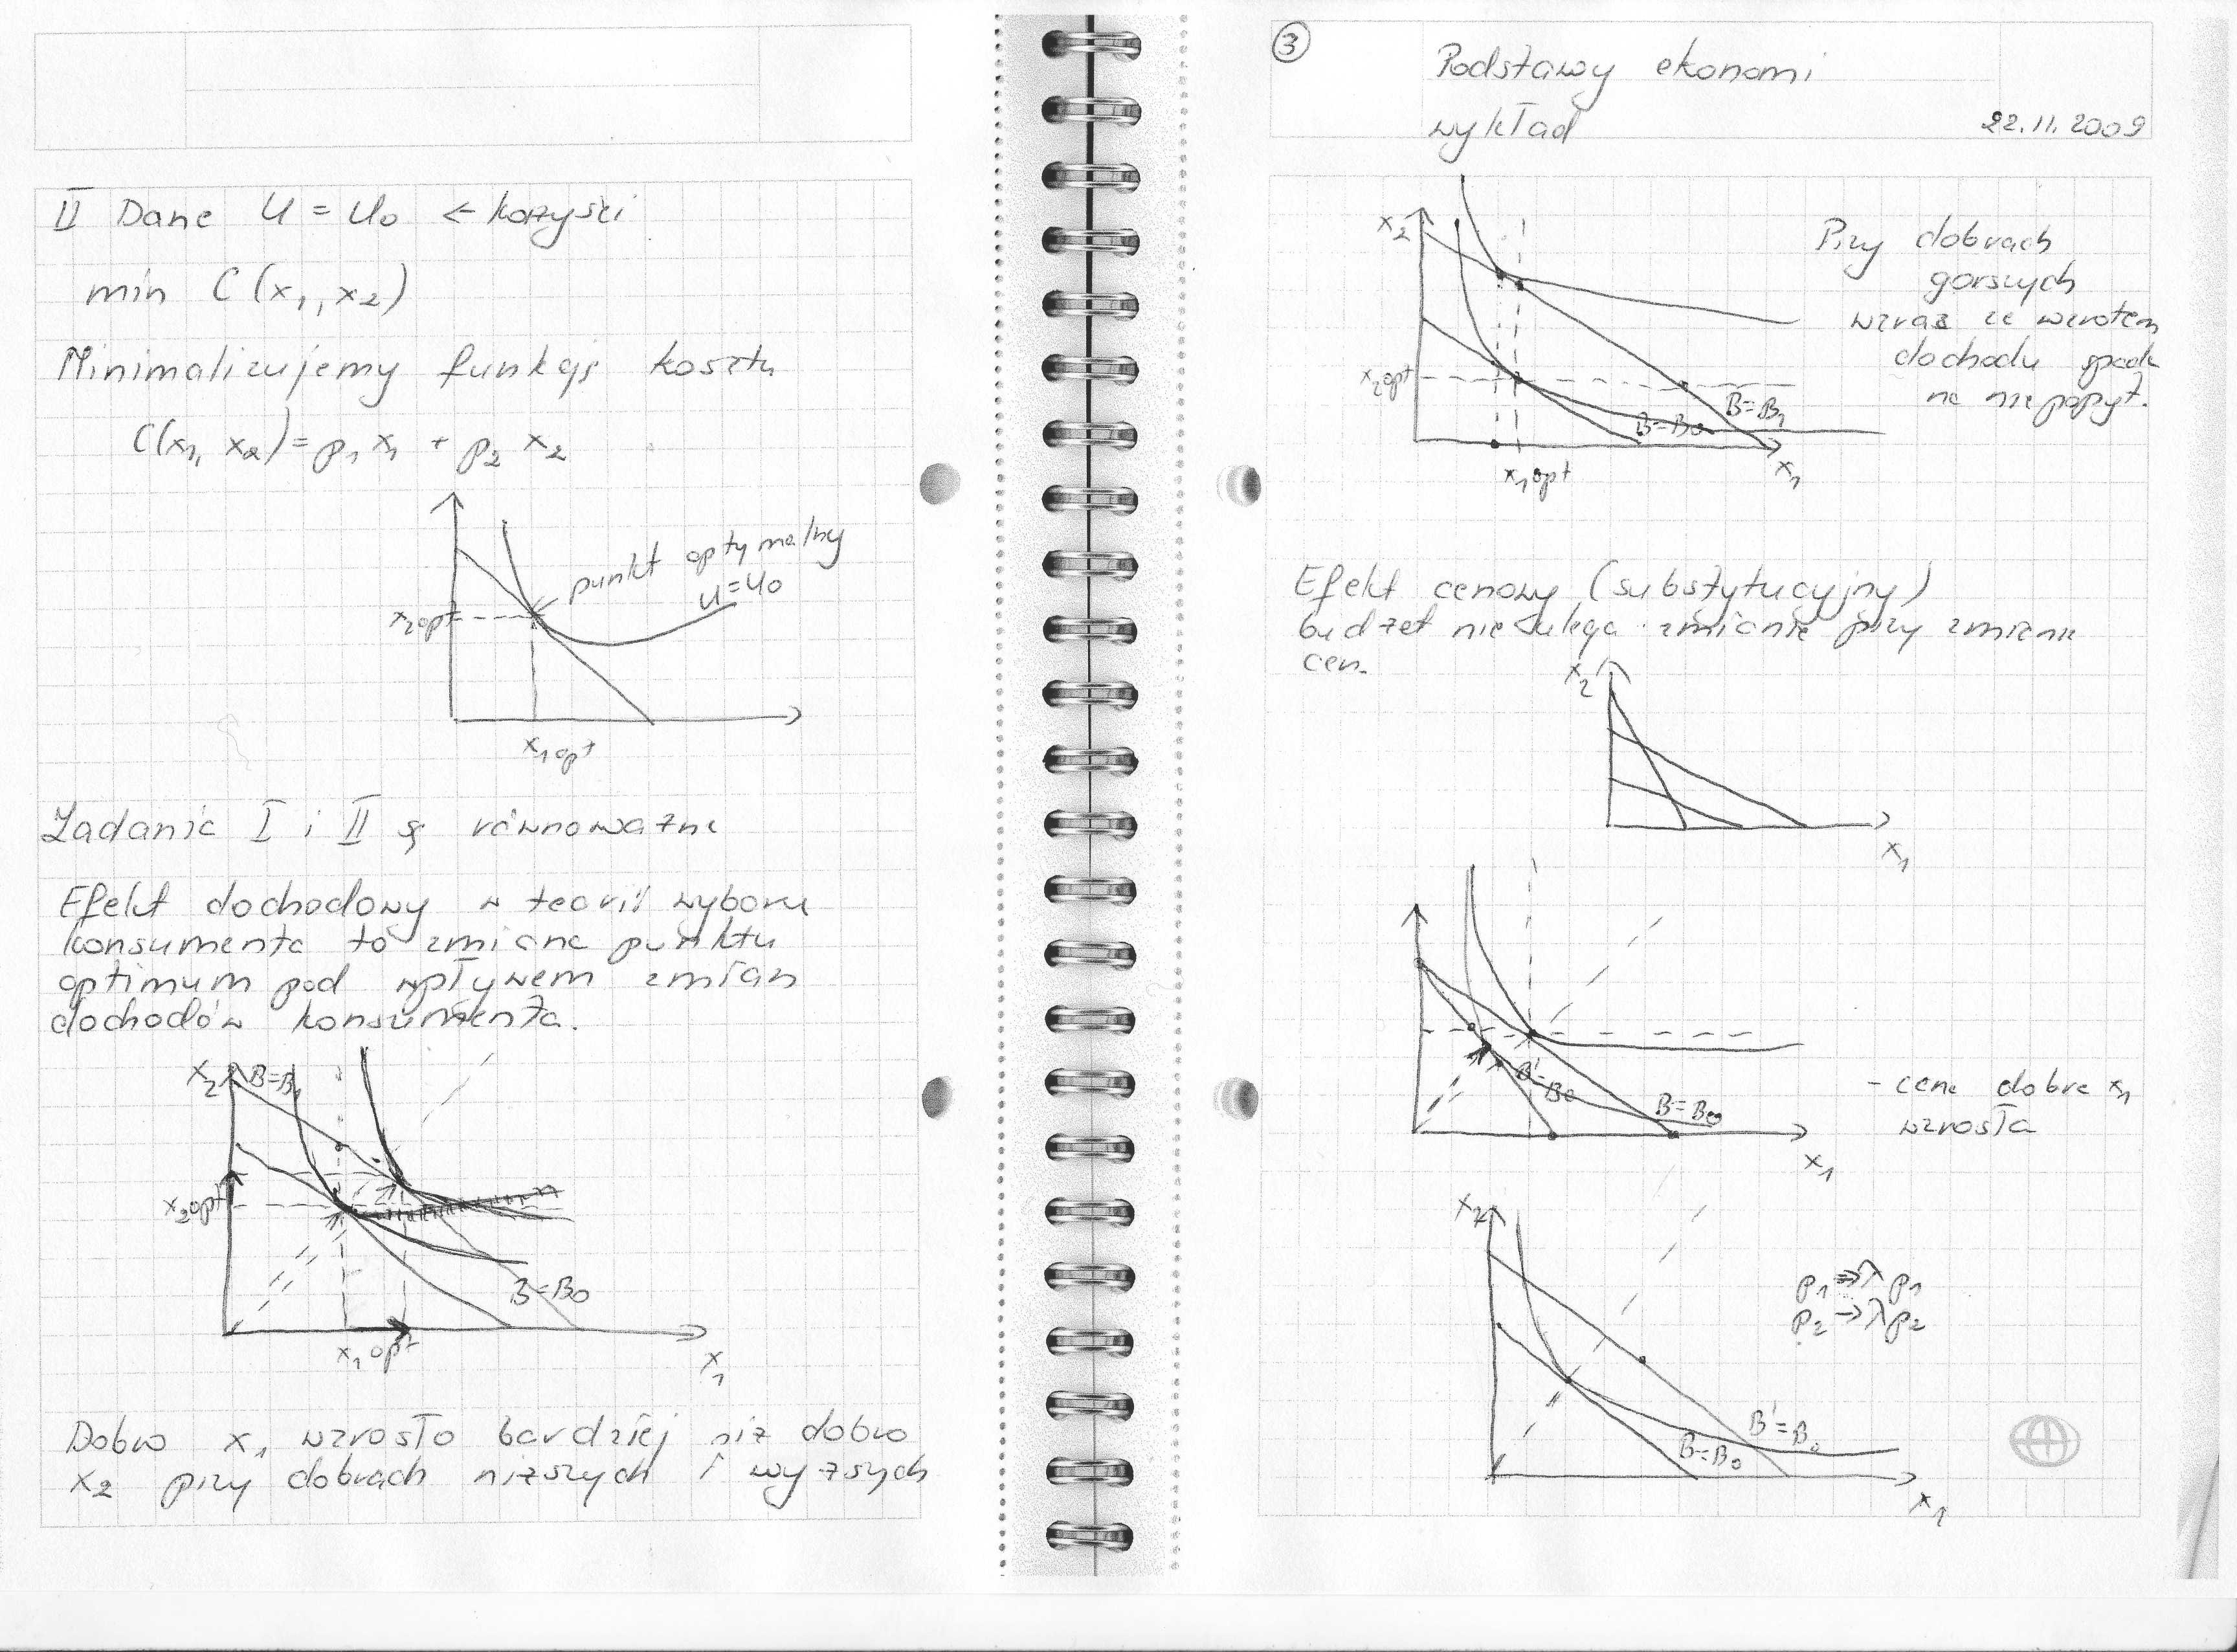 II Dane U = U0 ← korzyści
min C(x1, x2)
Minimalizujemy funkcję kosztu
C(x1, x2) = p1 x1 + p2 x2
punkt optymalny
U=U0
x2opt
x1opt
Zadanie I i II są równoważne
Efekt dochodowy w teorii wyboru
konsumenta to zmiana punktu
optimum pod wpływem zmian
dochodów konsumenta.
x2
B=B1
x2opt
B=B0
x1opt
x1
Dobro x1 wzrosło bardziej niż dobro
x2 przy dobrach niższych i wyższych
3
Podstawy ekonomi
wykład
22.11.2009
x2
Przy dobrach
gorszych
wraz ze wzrotem
dochodu spada
na nie popyt.
x2opt
B=B0
B=B1
x1opt
x1
Efekt cenowy (substytucyjny)
budżet nie ulega zmianie przy zmianie
cen.
x2
x1
B'=B0
B=B0
x1
- cena dobra x1
wzrosła
x2
p1 → λp1
p2 → λp2
B'=B0
B=B0
x1